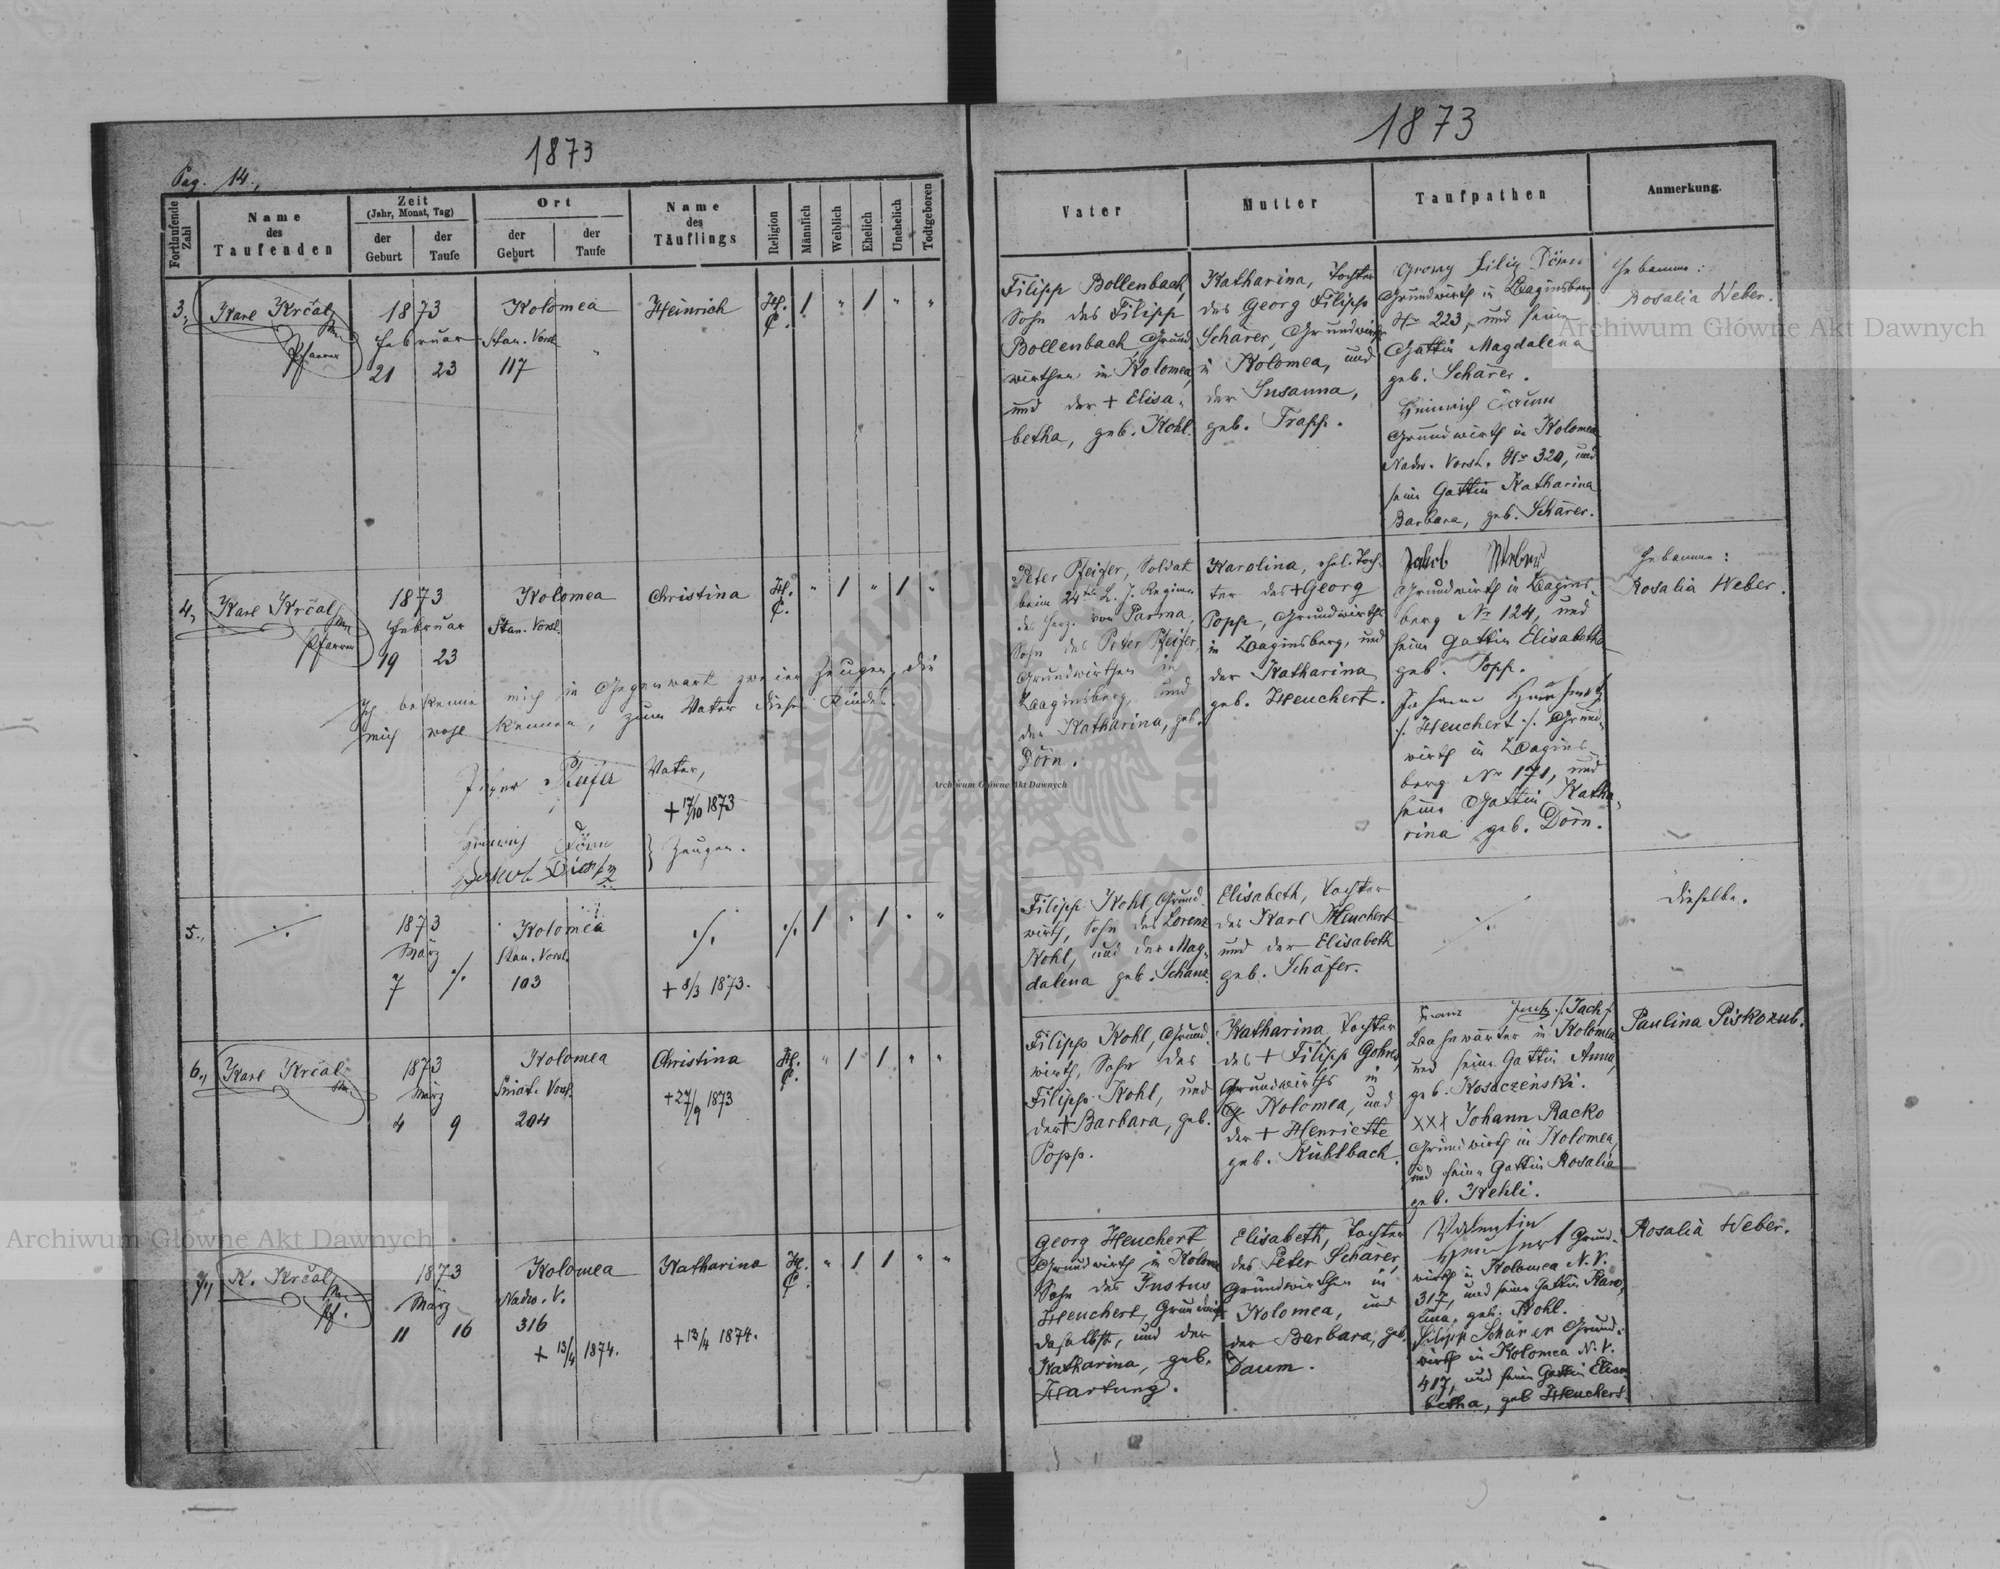 1873
Pag. 14.,
Fortlaufende Zahl
Name
des
Taufenden
Zeit
(Jahr, Monat, Tag)
der
Geburt
der
Taufe
Ort
der
Geburt
der
Taufe
Name
des
Täuflings
Religion
Männlich
Weiblich
Ehelich
Unehelich
Todtgeboren
3.,
Karl Krčal
Pfarrer
1873
Februar
21 23
Kolomea
Stan. Vorst.
117
"
Heinrich
H.
C.
/ " / " "
4.,
Karl Krčal
Pfarrer
1873
Februar
19 23
Kolomea
Stan. Vorst.
Christina
H.
C.
" / " / "
Ich bekenne mich in Gegenwart zweier Zeugen, die
mich wohl kennen, zum Vater dieses Kindes.
Vater,
+ 17/10 1873
Heinrich Dörn
} Zeugen.
5.,
./.
1873
März
7 ./.
Kolomea
Stan. Vorst.
103
./.
+ 8/3 1873.
./. / " / " "
6.,
Karl Krčal
1873
März
4 9
Kolomea
Sniat. Vorst.
204
Christina
+ 27/9 1873
H.
C.
" / / " "
7.,
K. Krčal
Pf.
1873
März
11 16
Kolomea
Nadw. V.
316
+ 13/4 1874.
Katharina
+ 13/4 1874.
H.
C.
" / / " "
1873
Vater
Mutter
Taufpathen
Anmerkung.
Filipp Bollenbach,
Sohn des Filipp
Bollenbach Grund
wirthen in Kolomea,
und der + Elisa-
betha, geb. Kohl.
Katharina, Tochter
des Georg Filipp
Schärer, Grundwirth
in Kolomea, und
der Susanna,
geb. Trapp.
Georg Filip Dörn
Grundwirth in Baginsberg
Nr 223, und seine
Gattin Magdalena
geb. Schärer.
Heinrich Daum
Grundwirth in Kolomea
Nadw. Vorst. Nr 320, und
seine Gattin Katharina
Barbara, geb. Schärer.
Hebamme:
Rosalia Weber.
Peter Pfeifer, Soldat
beim 24ten L. J. Regim.
des Herz. von Parma,
Sohn des Peter Pfeifer,
Grundwirthen in
Baginsberg, und
der Katharina, geb.
Dörn.
Karolina, ehel. Toch-
ter des + Georg
Popp, Grundwirths
in Baginsberg, und
der Katharina
geb. Heuchert.
Jakob Weber
Grundwirth in Bagins-
berg Nr 124, und
seine Gattin Elisabetha
geb. Popp.
Johann
./. Heuchert ./. Grund-
wirth in Bagins-
berg Nr 171, und
seine Gattin Katha-
rina geb. Dörn.
Hebamme:
Rosalia Weber.
Filipp Kohl, Grund-
wirth, Sohn des Lorenz
Kohl, und der Mag-
dalena geb. Schanz.
Elisabeth, Tochter
des Karl Heuchert
und der Elisabeth
geb. Schäfer.
./.
Dieselbe.
Filipp Kohl, Grund-
wirth, Sohn des
Filipp Kohl, und
der + Barbara, geb.
Popp.
Katharina Tochter
des + Filipp Gohres,
Grundwirths in
Kolomea, und
der + Henriette
geb. Kühlbach.
Franz ./. Jach ./.
Bahnwärter in Kolomea,
und seine Gattin Anna,
geb. Kosaczeński.
XXX Johann Racko
Grundwirth in Kolomea,
und seine Gattin Rosalia
geb. Kehli.
Paulina Piskozub.
Georg Heuchert
Grundwirth in Kolomea
Sohn des Justus
Heuchert, Grundwirth
daselbst, und der
Katharina, geb.
Hartung.
Elisabeth, Tochter
des Peter Schärer,
Grundwirthen in
Kolomea, und
der Barbara, geb.
Daum.
Valentin
Heuchert Grund-
wirth in Kolomea N. V.
317, und seine Gattin Karo-
lina, geb. Kohl.
Filipp Schärer Grund-
wirth in Kolomea N. V.
417, und seine Gattin Elisa-
betha, geb Heuchert.
Rosalia Weber.
Archiwum Główne Akt Dawnych
Archiwum Główne Akt Dawnych
Archiwum Główne Akt Dawnych